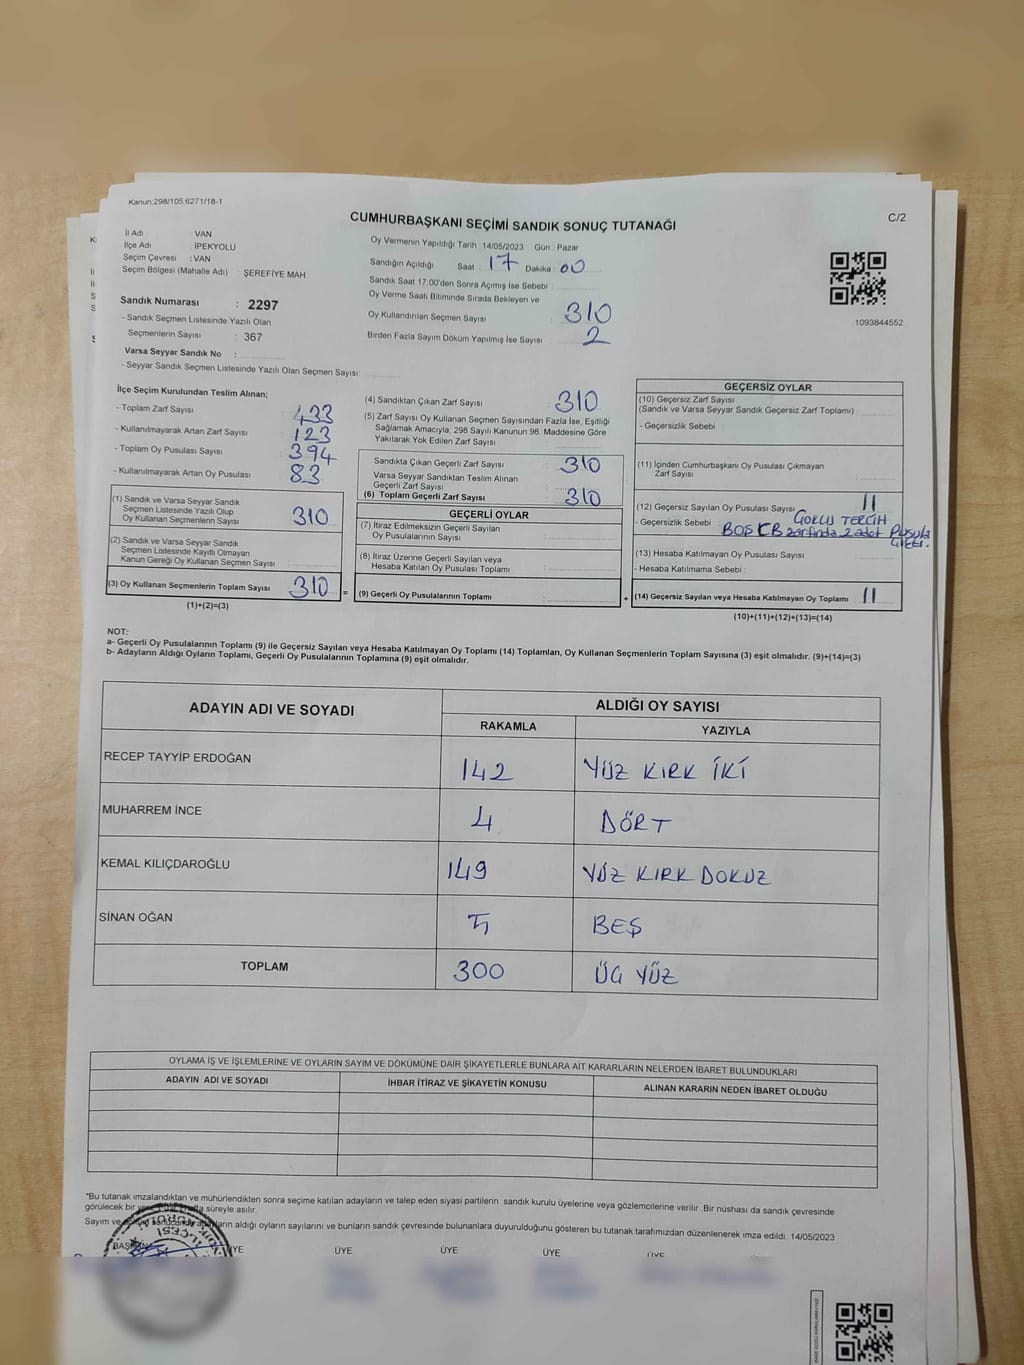 Kanun;298/105,6271/18-1
CUMHURBAŞKANI SEÇİMİ SANDIK SONUÇ TUTANAĞI
C/2
İl Adı : VAN
İlçe Adı : İPEKYOLU
Seçim Çevresi : VAN
Seçim Bölgesi (Mahalle Adı) : ŞEREFİYE MAH
Sandık Numarası : 2297
- Sandık Seçmen Listesinde Yazılı Olan
Seçmenlerin Sayısı : 367
Varsa Seyyar Sandık No :
- Seyyar Sandık Seçmen Listesinde Yazılı Olan Seçmen Sayısı:
Oy Vermenin Yapıldığı Tarih : 14/05/2023 Gün : Pazar
Sandığın Açıldığı Saat : 17 Dakika : 00
Sandık Saat 17:00'den Sonra Açılmış İse Sebebi :
Oy Verme Saati Bitiminde Sırada Bekleyen ve
Oy Kullandırılan Seçmen Sayısı : 310
Birden Fazla Sayım Döküm Yapılmış İse Sayısı : 2
1093844552
İlçe Seçim Kurulundan Teslim Alınan;
- Toplam Zarf Sayısı : 433
- Kullanılmayarak Artan Zarf Sayısı : 123
- Toplam Oy Pusulası Sayısı : 394
- Kullanılmayarak Artan Oy Pusulası : 83
(1) Sandık ve Varsa Seyyar Sandık
Seçmen Listesinde Yazılı Olup
Oy Kullanan Seçmenlerin Sayısı : 310
(2) Sandık ve Varsa Seyyar Sandık
Seçmen Listesinde Kayıtlı Olmayan
Kanun Gereği Oy Kullanan Seçmen Sayısı :
(3) Oy Kullanan Seçmenlerin Toplam Sayısı : 310 =
(1)+(2)=(3)
(4) Sandıktan Çıkan Zarf Sayısı : 310
(5) Zarf Sayısı Oy Kullanan Seçmen Sayısından Fazla İse, Eşitliği
Sağlamak Amacıyla; 298 Sayılı Kanunun 98. Maddesine Göre
Yakılarak Yok Edilen Zarf Sayısı :
Sandıkta Çıkan Geçerli Zarf Sayısı : 310
Varsa Seyyar Sandıktan Teslim Alınan
Geçerli Zarf Sayısı :
(6) Toplam Geçerli Zarf Sayısı : 310
GEÇERLİ OYLAR
(7) İtiraz Edilmeksizin Geçerli Sayılan
Oy Pusulalarının Sayısı :
(8) İtiraz Üzerine Geçerli Sayılan veya
Hesaba Katılan Oy Pusulası Toplamı :
(9) Geçerli Oy Pusulalarının Toplamı : +
GEÇERSİZ OYLAR
(10) Geçersiz Zarf Sayısı
(Sandık ve Varsa Seyyar Sandık Geçersiz Zarf Toplamı) :
- Geçersizlik Sebebi :
(11) İçinden Cumhurbaşkanı Oy Pusulası Çıkmayan
Zarf Sayısı :
(12) Geçersiz Sayılan Oy Pusulası Sayısı : 11
- Geçersizlik Sebebi : TERCİH
BOŞ CB zarfında 2 adet Pusula
(13) Hesaba Katılmayan Oy Pusulası Sayısı :
- Hesaba Katılmama Sebebi :
(14) Geçersiz Sayılan veya Hesaba Katılmayan Oy Toplamı : 11
(10)+(11)+(12)+(13)=(14)
NOT:
a- Geçerli Oy Pusulalarının Toplamı (9) ile Geçersiz Sayılan veya Hesaba Katılmayan Oy Toplamı (14) Toplamları, Oy Kullanan Seçmenlerin Toplam Sayısına (3) eşit olmalıdır. (9)+(14)=(3)
b- Adayların Aldığı Oyların Toplamı, Geçerli Oy Pusulalarının Toplamına (9) eşit olmalıdır.
ADAYIN ADI VE SOYADI ALDIĞI OY SAYISI
RAKAMLA YAZIYLA
RECEP TAYYİP ERDOĞAN 142 YÜZ KIRK İKİ
MUHARREM İNCE 4 DÖRT
KEMAL KILIÇDAROĞLU 149 YÜZ KIRK DOKUZ
SİNAN OĞAN 5 BEŞ
TOPLAM 300 ÜÇ YÜZ
OYLAMA İŞ VE İŞLEMLERİNE VE OYLARIN SAYIM VE DÖKÜMÜNE DAİR ŞİKAYETLERLE BUNLARA AİT KARARLARIN NELERDEN İBARET BULUNDUKLARI
ADAYIN ADI VE SOYADI İHBAR İTİRAZ VE ŞİKAYETİN KONUSU ALINAN KARARIN NEDEN İBARET OLDUĞU
*Bu tutanak imzalandıktan ve mühürlendikten sonra seçime katılan adayların ve talep eden siyasi partilerin sandık kurulu üyelerine veya gözlemcilerine verilir. Bir nüshası da sandık çevresinde
görülecek bir yere süreyle asılır.
Sayım ve adayların aldığı oyların sayılarını ve bunların sandık çevresinde bulunanlara duyurulduğunu gösteren bu tutanak tarafımızdan düzenlenerek imza edildi. 14/05/2023
BAŞKAN ÜYE ÜYE ÜYE ÜYE ÜYE